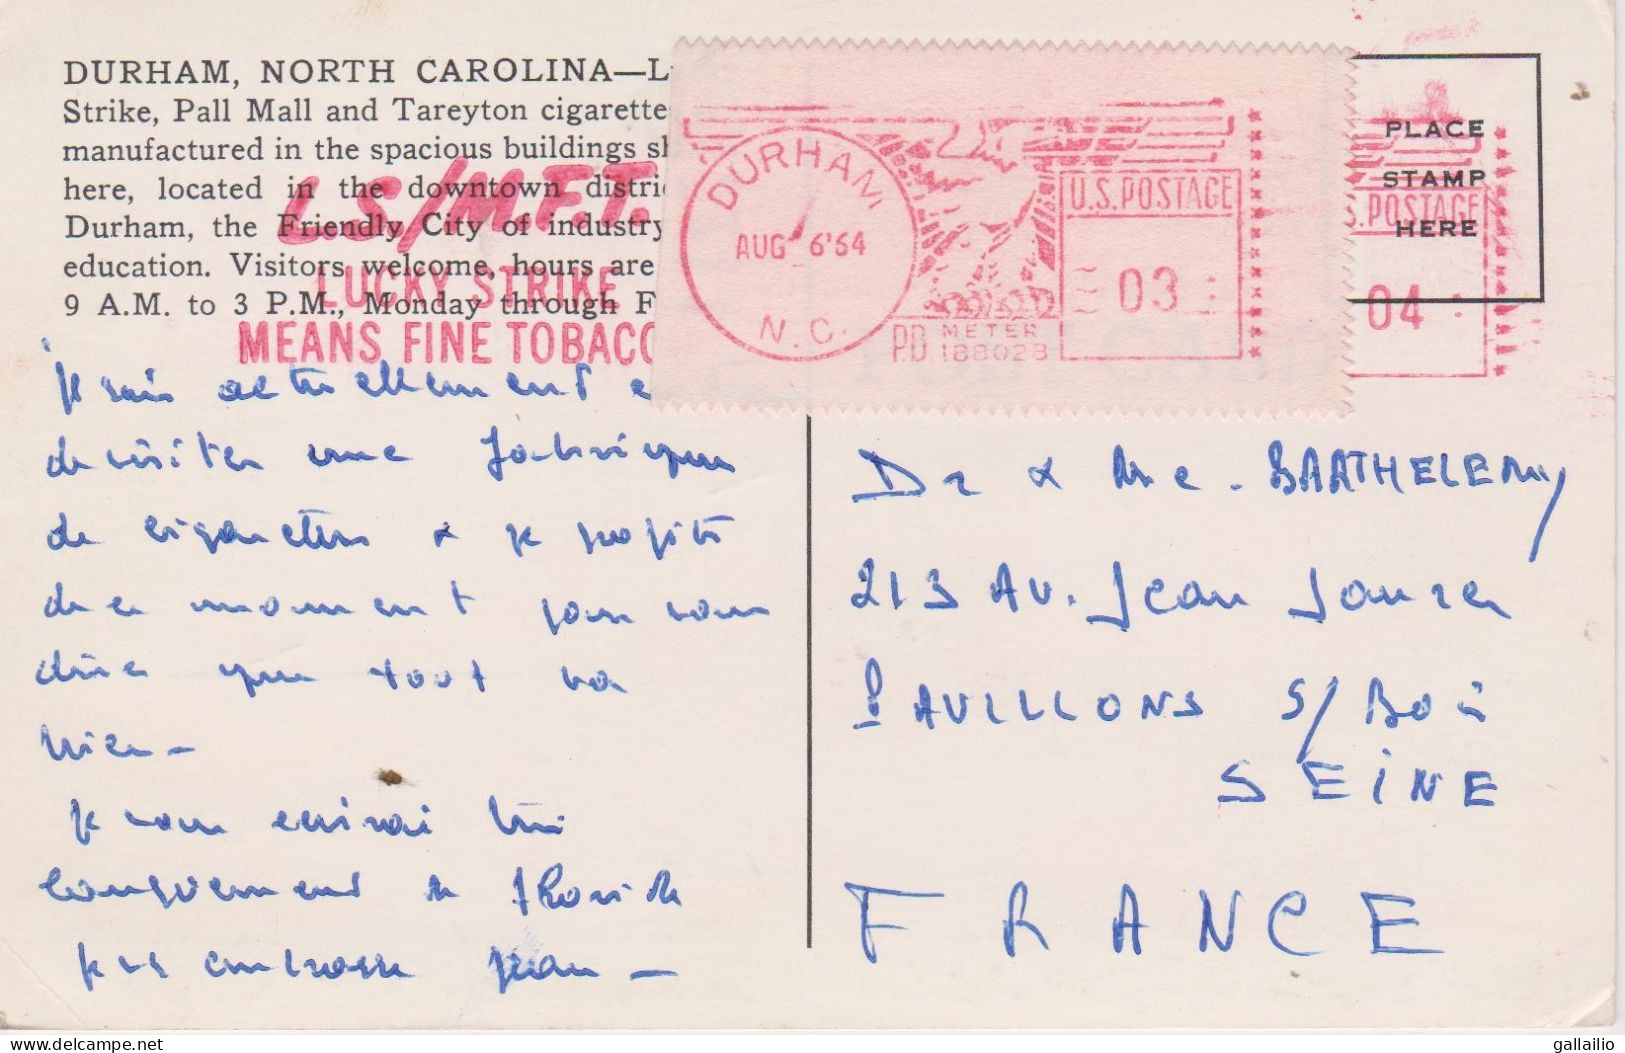 DURHAM, NORTH CAROLINA—L
Strike, Pall Mall and Tareyton cigarette
manufactured in the spacious buildings sh
here, located in the downtown distri
Durham, the Friendly City of industry
education. Visitors welcome, hours are
9 A.M. to 3 P.M., Monday through F
L.S./M.F.T.
LUCKY STRIKE
MEANS FINE TOBACC
DURHAM
AUG 6'64
N.C.
U.S. POSTAGE
03
P.B. METER
188028
S. POSTAGE
04
PLACE
STAMP
HERE
Je suis actuellement e
de visiter une fabrique
de cigarettes & je profite
de ce moment pour vous
dire que tout va
bien —
Je vous écrirai très
longuement de Floride
Je vs embrasse Jean —
Dr & Me. BARTHELEMY
213 AV. Jean Jaurès
PAVILLONS S/ Bois
SEINE
FRANCE
gallailio
© delcampe.net